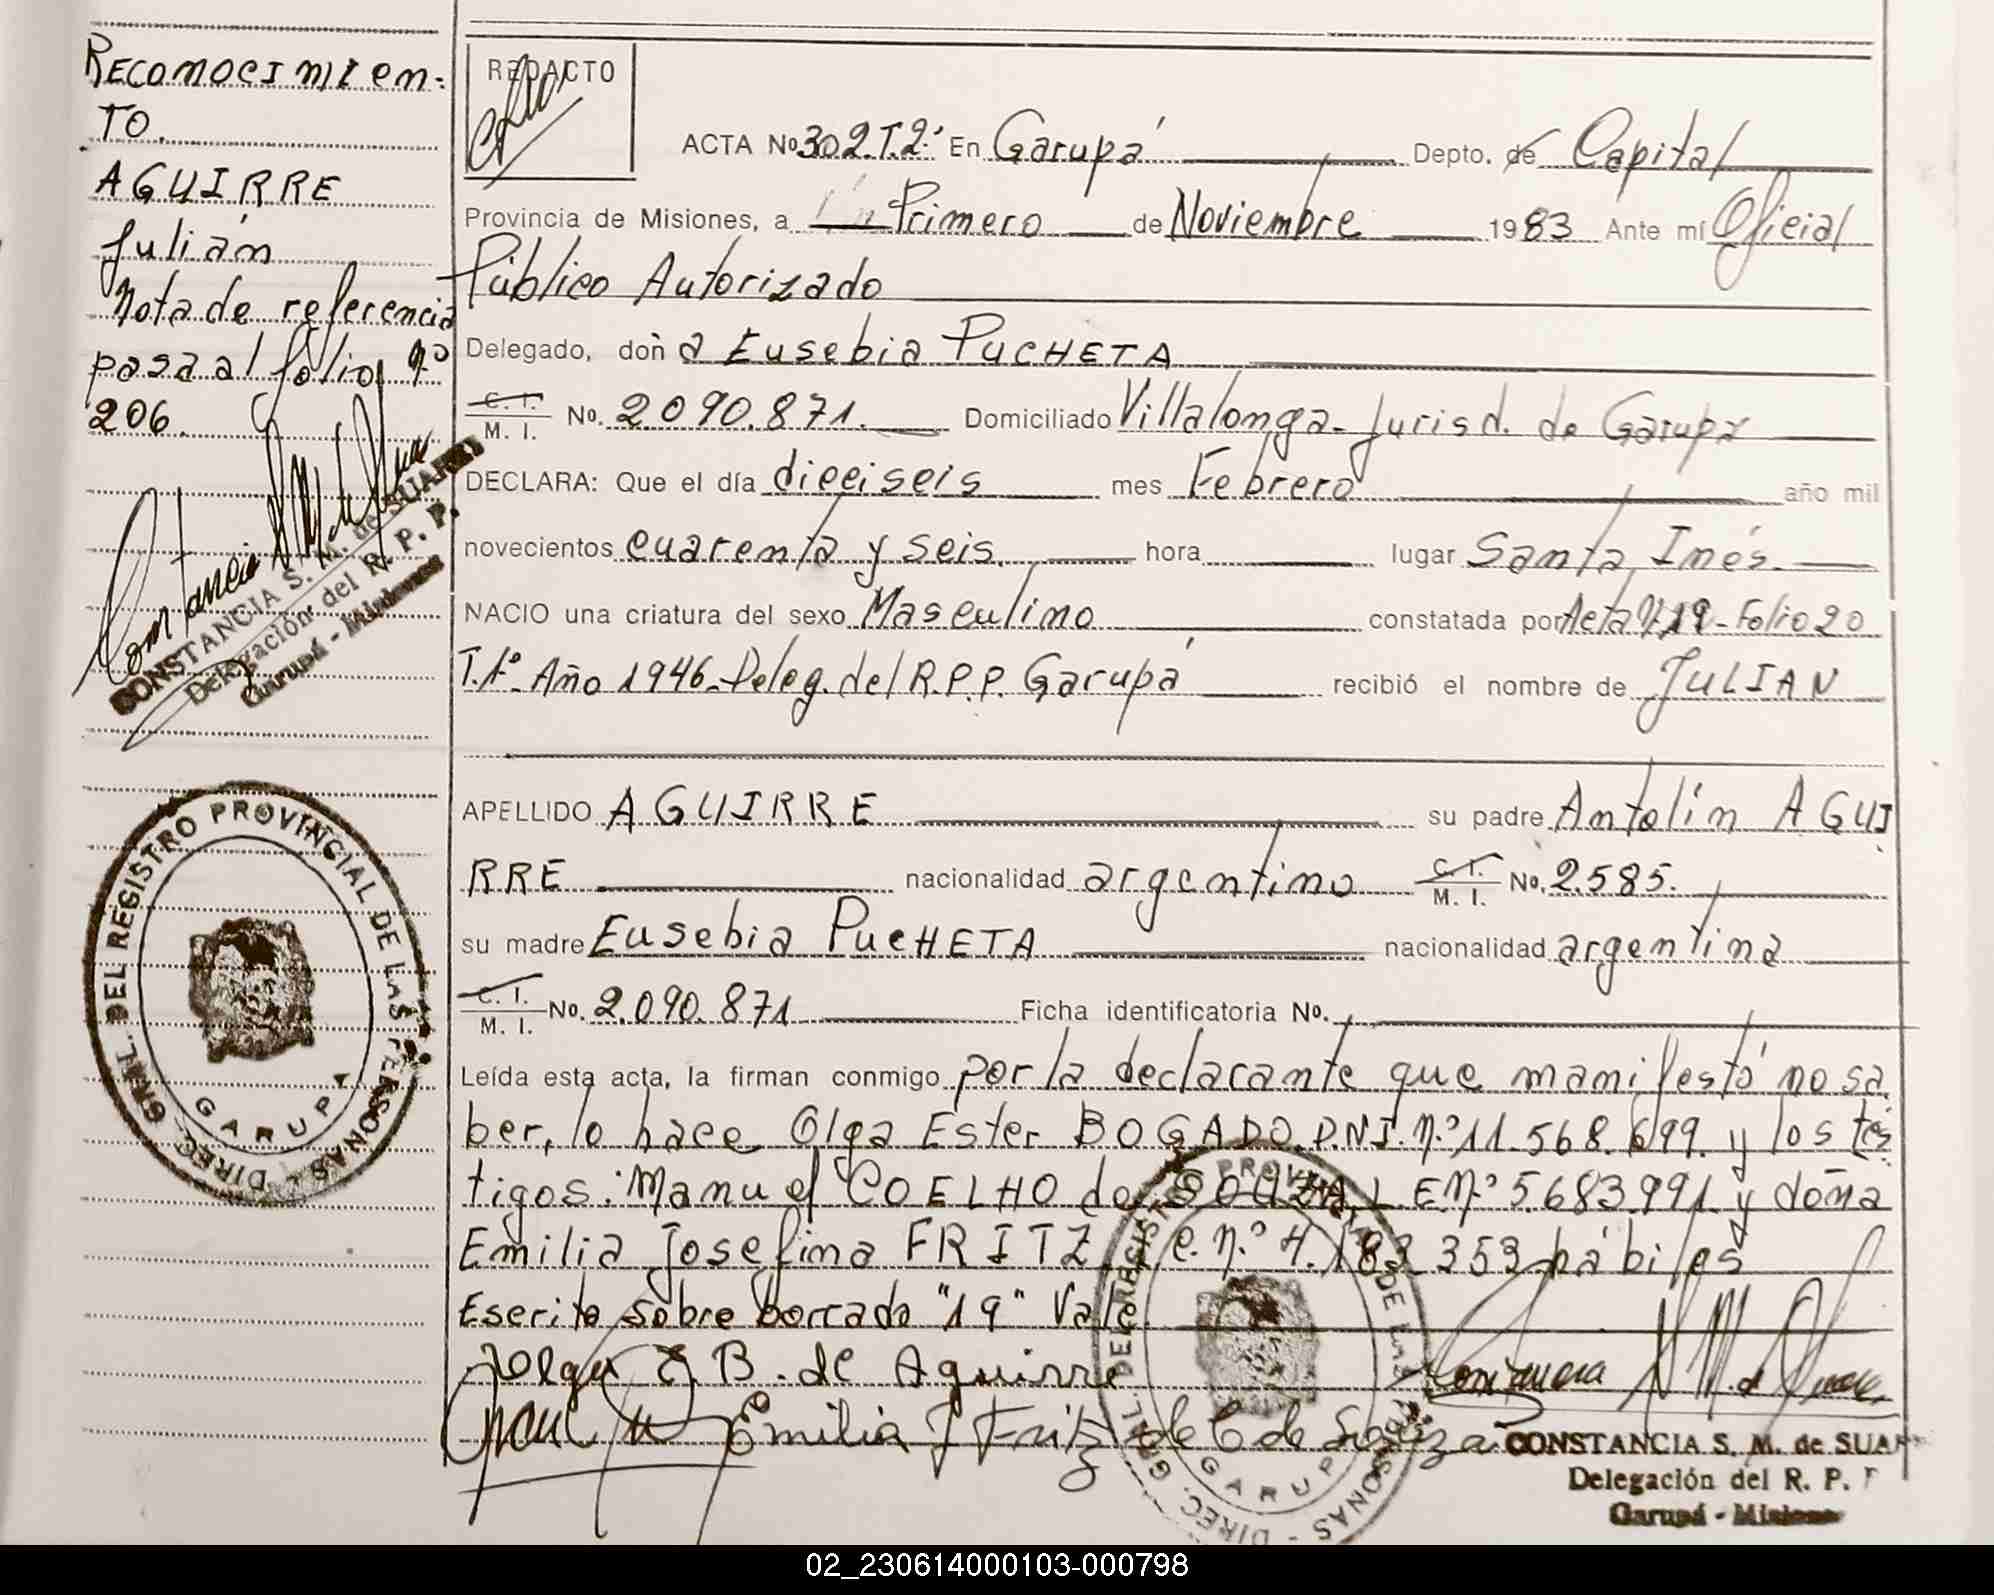 RECONOCIMIEN-
TO.
AGUIRRE
Julián
Nota de referencia
pasa al folio nº
206.
CONSTANCIA S. M. de SUAREZ
Delegación del R. P. P.
Garupá - Misiones
DIREC. GRAL. DEL REGISTRO PROVINCIAL DE LAS PERSONAS -
GARUPA
REDACTO
ACTA Nº 302.T.2º En Garupá Depto. de Capital
Provincia de Misiones, a Primero de Noviembre 1983 Ante mí Oficial
Público Autorizado
Delegado, doña Eusebia PUCHETA
C. I.
M. I. No. 2.090.871. Domiciliado Villalonga-Jurisd. de Garupá
DECLARA: Que el día dieciseis mes Febrero año mil
novecientos cuarenta y seis. hora lugar Santa Inés.
NACIO una criatura del sexo Masculino constatada por Acta Nº 19-Folio 20
T.1º-Año 1946-Deleg. del R.P.P. Garupá recibió el nombre de JULIAN
APELLIDO AGUIRRE su padre Antolín AGUI
RRE nacionalidad argentino C. I. M. I. No. 2.585.
su madre Eusebia PUCHETA nacionalidad argentina
C. I.
M. I. No. 2.090.871 Ficha identificatoria No.
Leída esta acta, la firman conmigo por la declarante que manifestó no sa
ber, lo hace Olga Ester BOGADO D.N.I. n.º 11.568.699 y los tes
tigos: Manuel COELHO de SOUZA L.E.n.º 5.683.991. y doña
Emilia Josefina FRITZ l.e. n.º 4.183.353 hábiles
Escrito sobre borrado "19" Vale.
Olga E. B. de Aguirre
Emilia J Fritz de C de Souza
CONSTANCIA S. M. de SUAR
Delegación del R. P. P
Garupá - Misiones
DIREC. GRAL. DEL REGISTRO PROVINCIAL DE LAS PERSONAS -
GARUPA
02_230614000103-000798